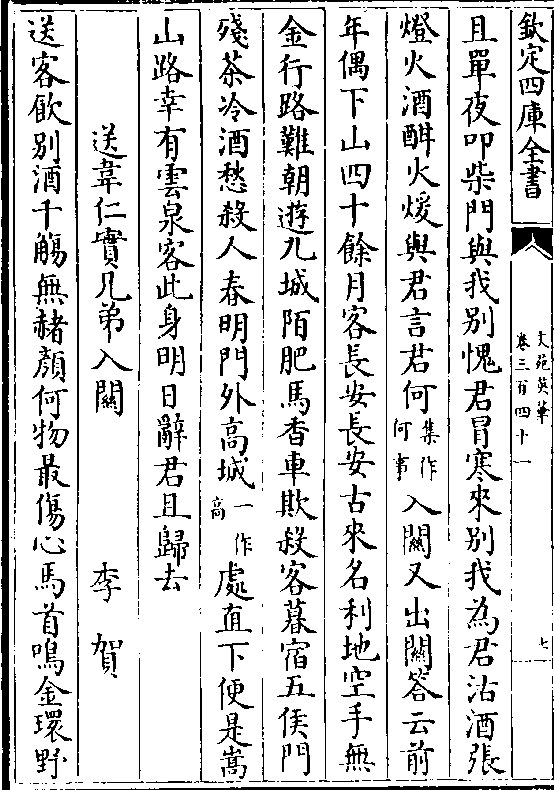 欽定四庫全書
文苑英華
卷三百四十一
七
且單夜叩柴門與我别愧君冒寒來别我為君沽酒張
燈火酒酣火煖與君言君何集作何事入關又出關答云前
年偶下山四十餘月客長安長安古來名利地空手無
金行路難朝遊九城陌肥馬香車欺殺客暮宿五侯門
殘茶冷酒愁殺人春明門外高城一作高處直下便是嵩
山路幸有雲泉客此身明日辭君且歸去
送韋仁實兄弟入關
李賀
送客飲别酒千觴無赭顔何物最傷心馬首鳴金環野